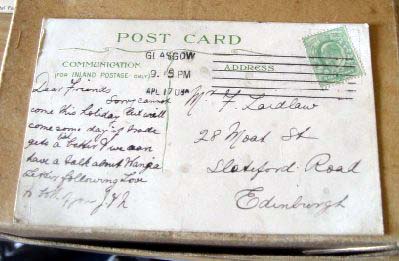 POST CARD
GLASGOW
9. 15 PM
APL 17 08
COMMUNICATION
(FOR INLAND POSTAGE ONLY)
ADDRESS.
Dear Friend
Sorry cannot
come this holiday but will
come some day if trade
gets a bit better & we can
have a talk about
following Love
to
Mr F. Laidlaw
28 Moat St
Slateford Road
Edinburgh